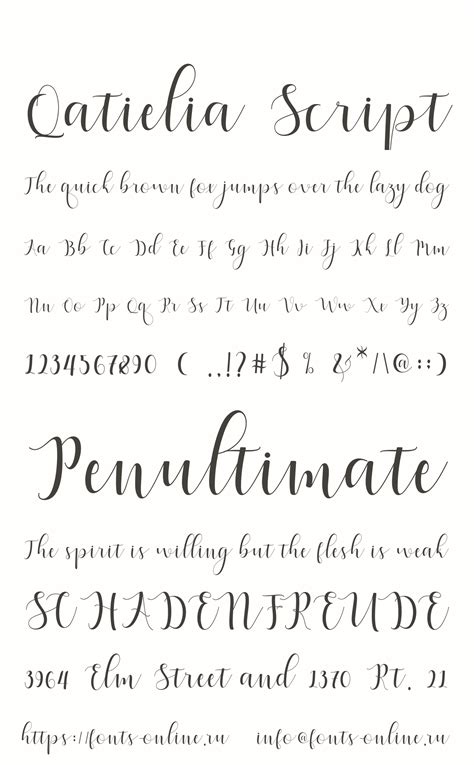 Qatielia Script
The quick brown fox jumps over the lazy dog
Aa Bb Cc Dd Ee Ff Gg Hh Ii Jj Kk Ll Mm
Nn Oo Pp Qq Rr Ss Tt Uu Vv Ww Xx Yy Zz
1234567890 ( ..!?#$ % &*/\@::)
Penultimate
The spirit is willing but the flesh is weak
SCHADENFREUDE
3964 Elm Street and 1370 Rt. 21
https://fonts-online.ru info@fonts-online.ru